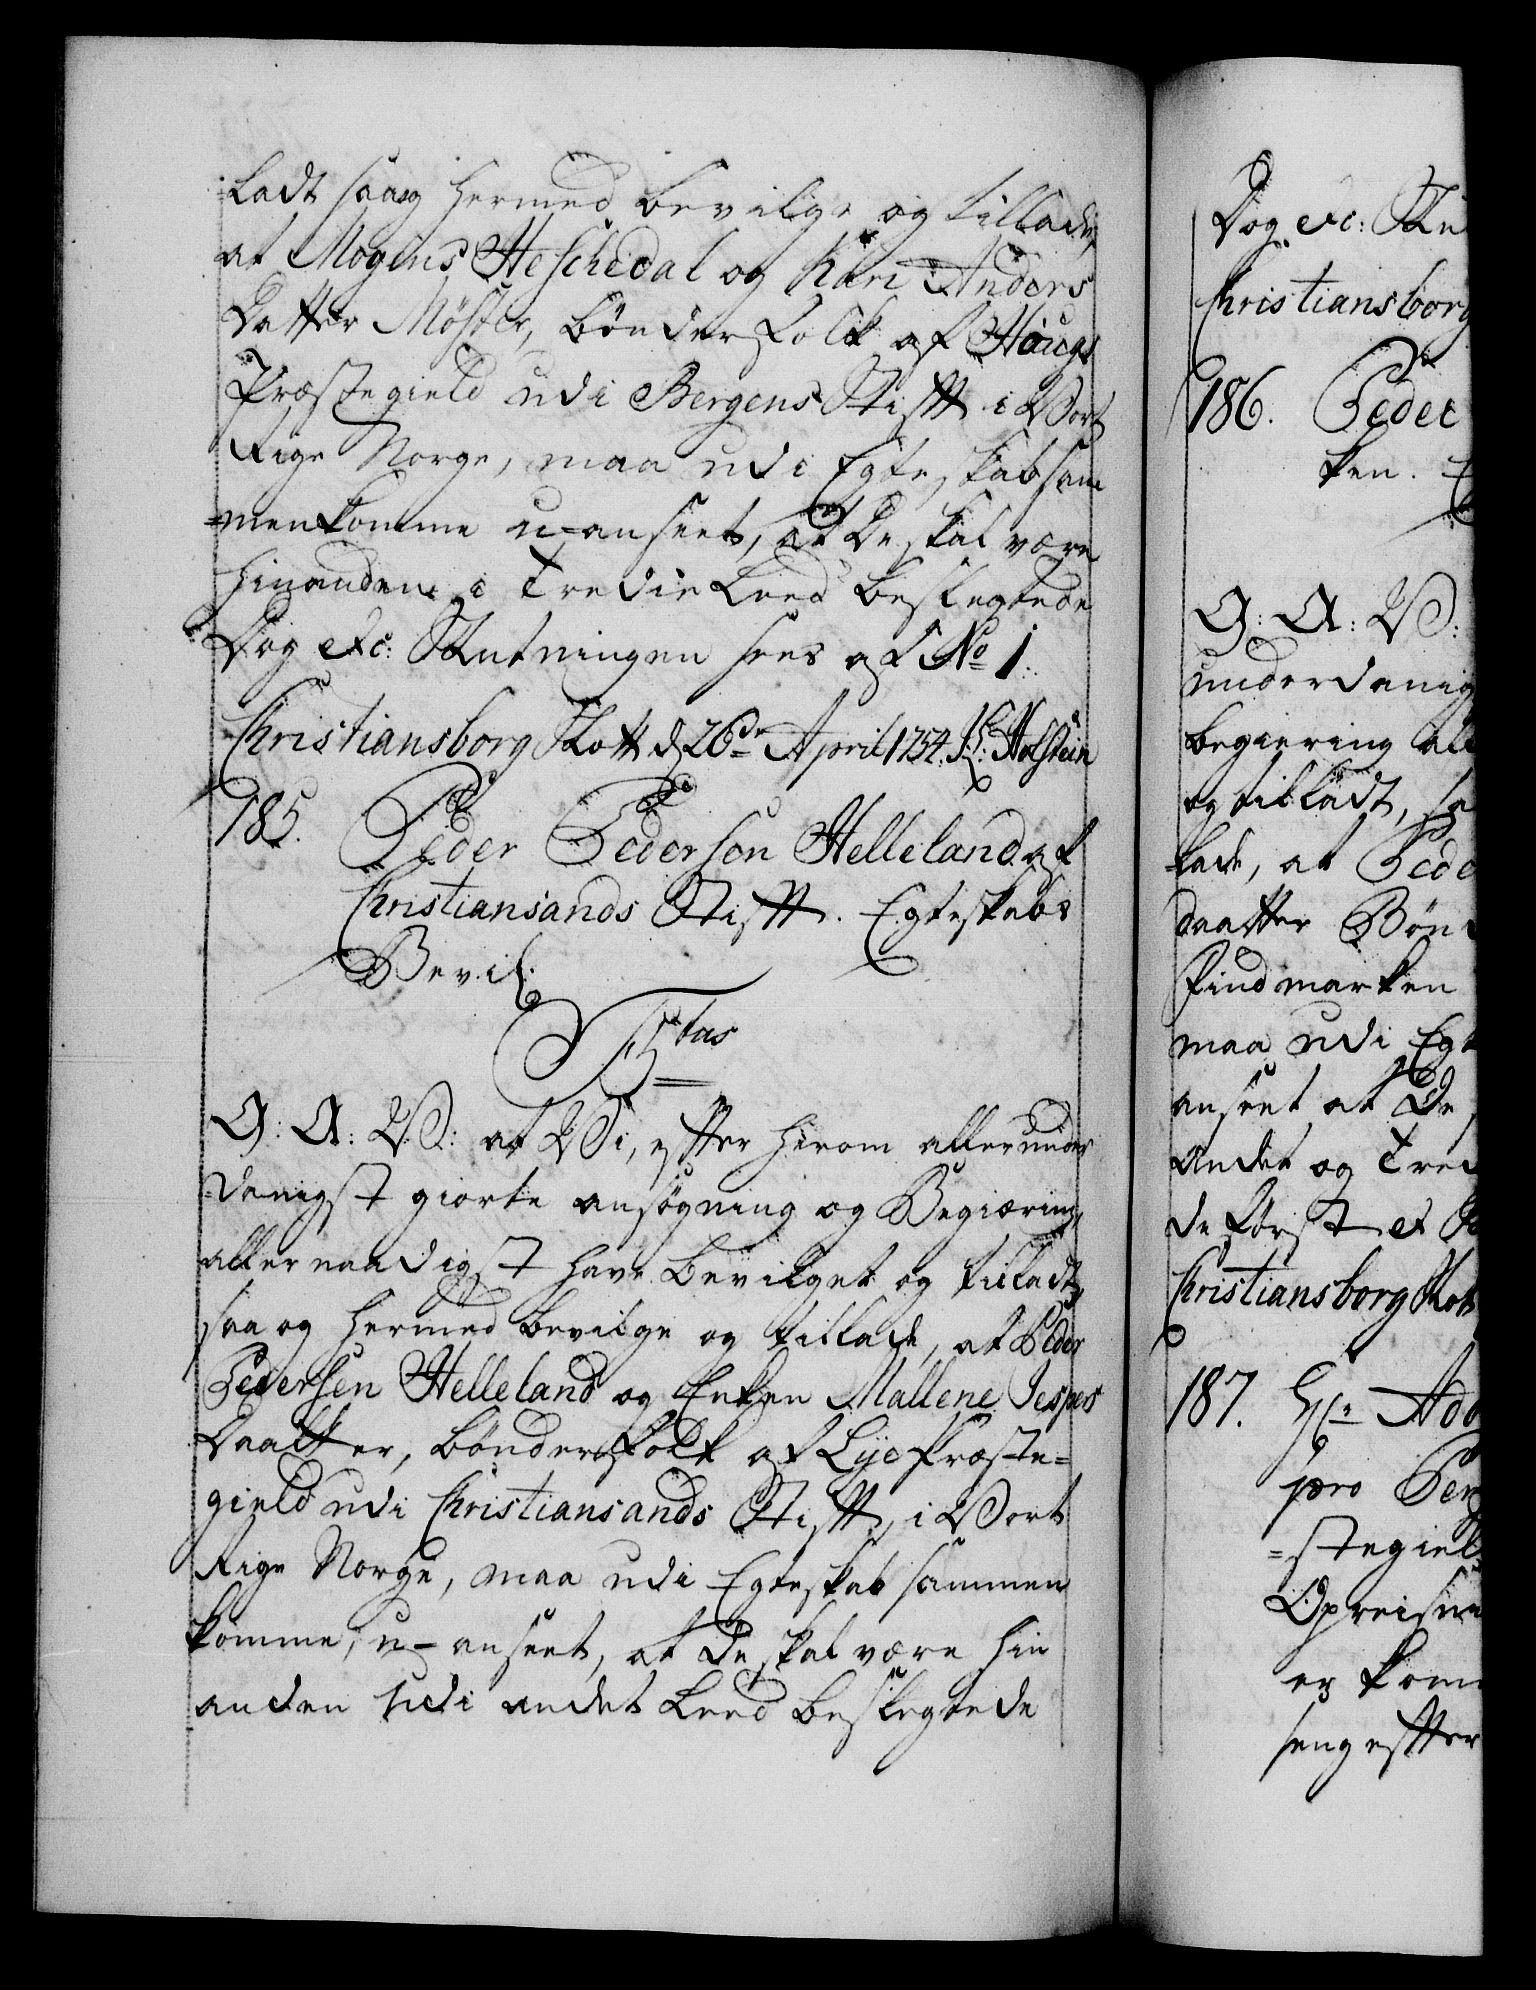 =ladt saa og hermed bevilge og tillade,
at Mogens Heschedal og Kari Anders
Datter Møster, bønderfolk af Haugs
Præstegield udi Bergens Stifft i Vort
Rige Norge, maa udi Egteskab sam
=menkomme u-anseet, at De skal være
hinanden i Tredie Leed beslegtede
Dog etc: Slutningen sees af No 1.
Christiansborg Slott d 26de April 1754. J. L: Holstein
185. Peder Pedersen Helleland af
Christiansands Stifft. Egteskabs
Bevil:
F 5tus
G: A: V: at Vi, effter herom allerunder
=danigst giorte ansøgning og Begiæring,
allernaadigst have bevilget og tilladt,
saa og hermed bevilge og tillade, at Peder
Pedersen Helleland og Enken Mallene Jespers
Daatter, bønderfolk af Lye Præste=
gield udi Christiansands Stifft, i Vort
Rige Norge, maa udi Egteskab sammen
komme, u-anseet, at de skal være hin
anden udi andet Leed beslegtede
Dog etc: Slu
Christiansborg
186. Peder
ken. E
G: A: V:
underdanig
begiering all
og tilladt, sa
=lade, at Pede
daatter Bøn
Findmarken
maa udi Egt
anseet at De
andet og Tred
de først et
Christiansborg Slot
187. Hr Ado
pro Per
=stegiel
Opreisn
er kom
seng effter